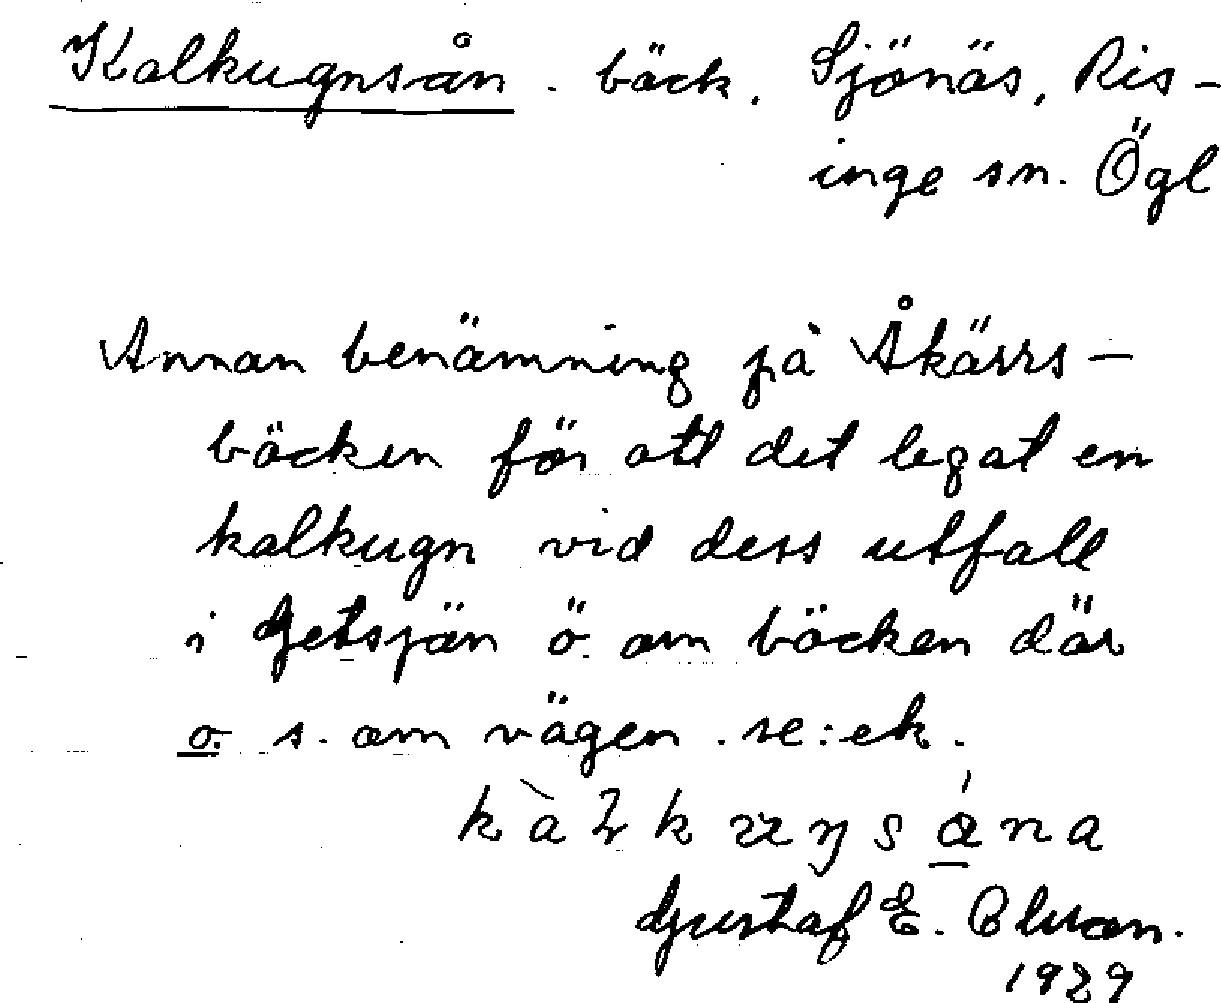 Kalkugnsån. bäck. Sjönäs, Ris-
inge sn. Ögl
Annan benämning på Åkärrs-
bäcken för att det legat en
kalkugn vid dess utfall
i Getsjön ö. om bäcken där
o. s. om vägen. se: ek.
Gustaf E.
1929